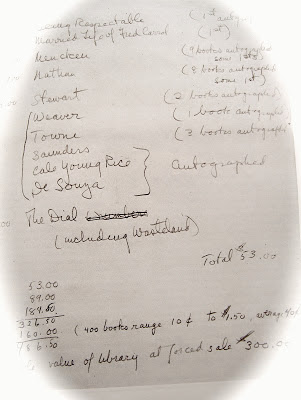 Being Respectable (1st autog.
Married Life of Fred Carrol (1st)
Mencken (9 books autographed some 1sts)
Nathan (8 books autographed some 1st)
Stewart (2 books autographed
Weaver (1 book autograph
Towne (3 books autographed)
Saunders
Cale Young Rice
De Souza
Autographed
The Dial
(including Wasteland)
Total $53.00
53.00
89.00
184.50
336.50
160.00 (400 books range 10¢ to $1.50, average 40¢
86.50
value of library at forced sale $300.00